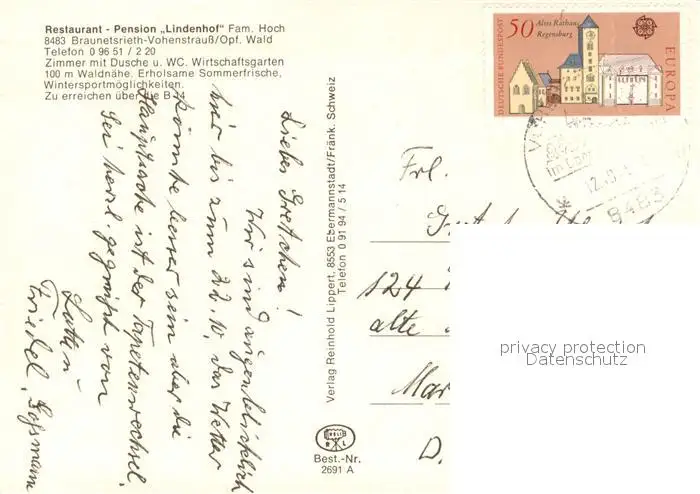 Restaurant - Pension „Lindenhof“ Fam. Hoch
8483 Braunetsrieth-Vohenstrauß/Opf. Wald
Telefon 0 96 51 / 2 20
Zimmer mit Dusche u. WC. Wirtschaftsgarten
100 m Waldnähe. Erholsame Sommerfrische,
Wintersportmöglichkeiten.
Zu erreichen über die B 14
Liebes Gretchen!
Wir sind augenblicklich
hier bis zum 22.10, das Wetter
könnte besser sein aber die
Hauptsache ist der Tapetenwechsel.
Sei herzl. gegrüßt von
Friedel,
Verlag Reinhold Lippert, 8553 Ebermannstadt/Fränk. Schweiz
Telefon 0 91 94 / 5 14
Best.-Nr.
2691 A
DEUTSCHE BUNDESPOST
50
Altes Rathaus
Regensburg
EUROPA
8483
Frl.
124
alte
Mar
D.
privacy protection
Datenschutz